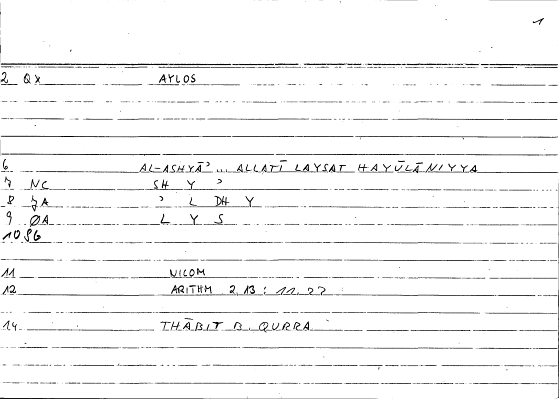 1
2 QX AYLOS
6 AL-ASHYĀʾ ... ALLATĪ LAYSAT HAYŪLĀNIYYA
7 NC SH Y ʾ
8 ʒA ʾ L DH Y
9 ØA L Y S
10 SG
11 NICOM
12 ARITHM 2.13 : 11.22
14 THĀBIT B. QURRA